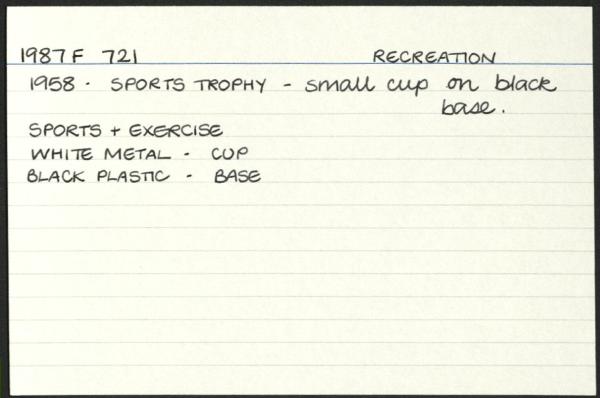 1987 F 721 RECREATION
1958 - SPORTS TROPHY - small cup on black
base.
SPORTS + EXERCISE
WHITE METAL - CUP
BLACK PLASTIC - BASE